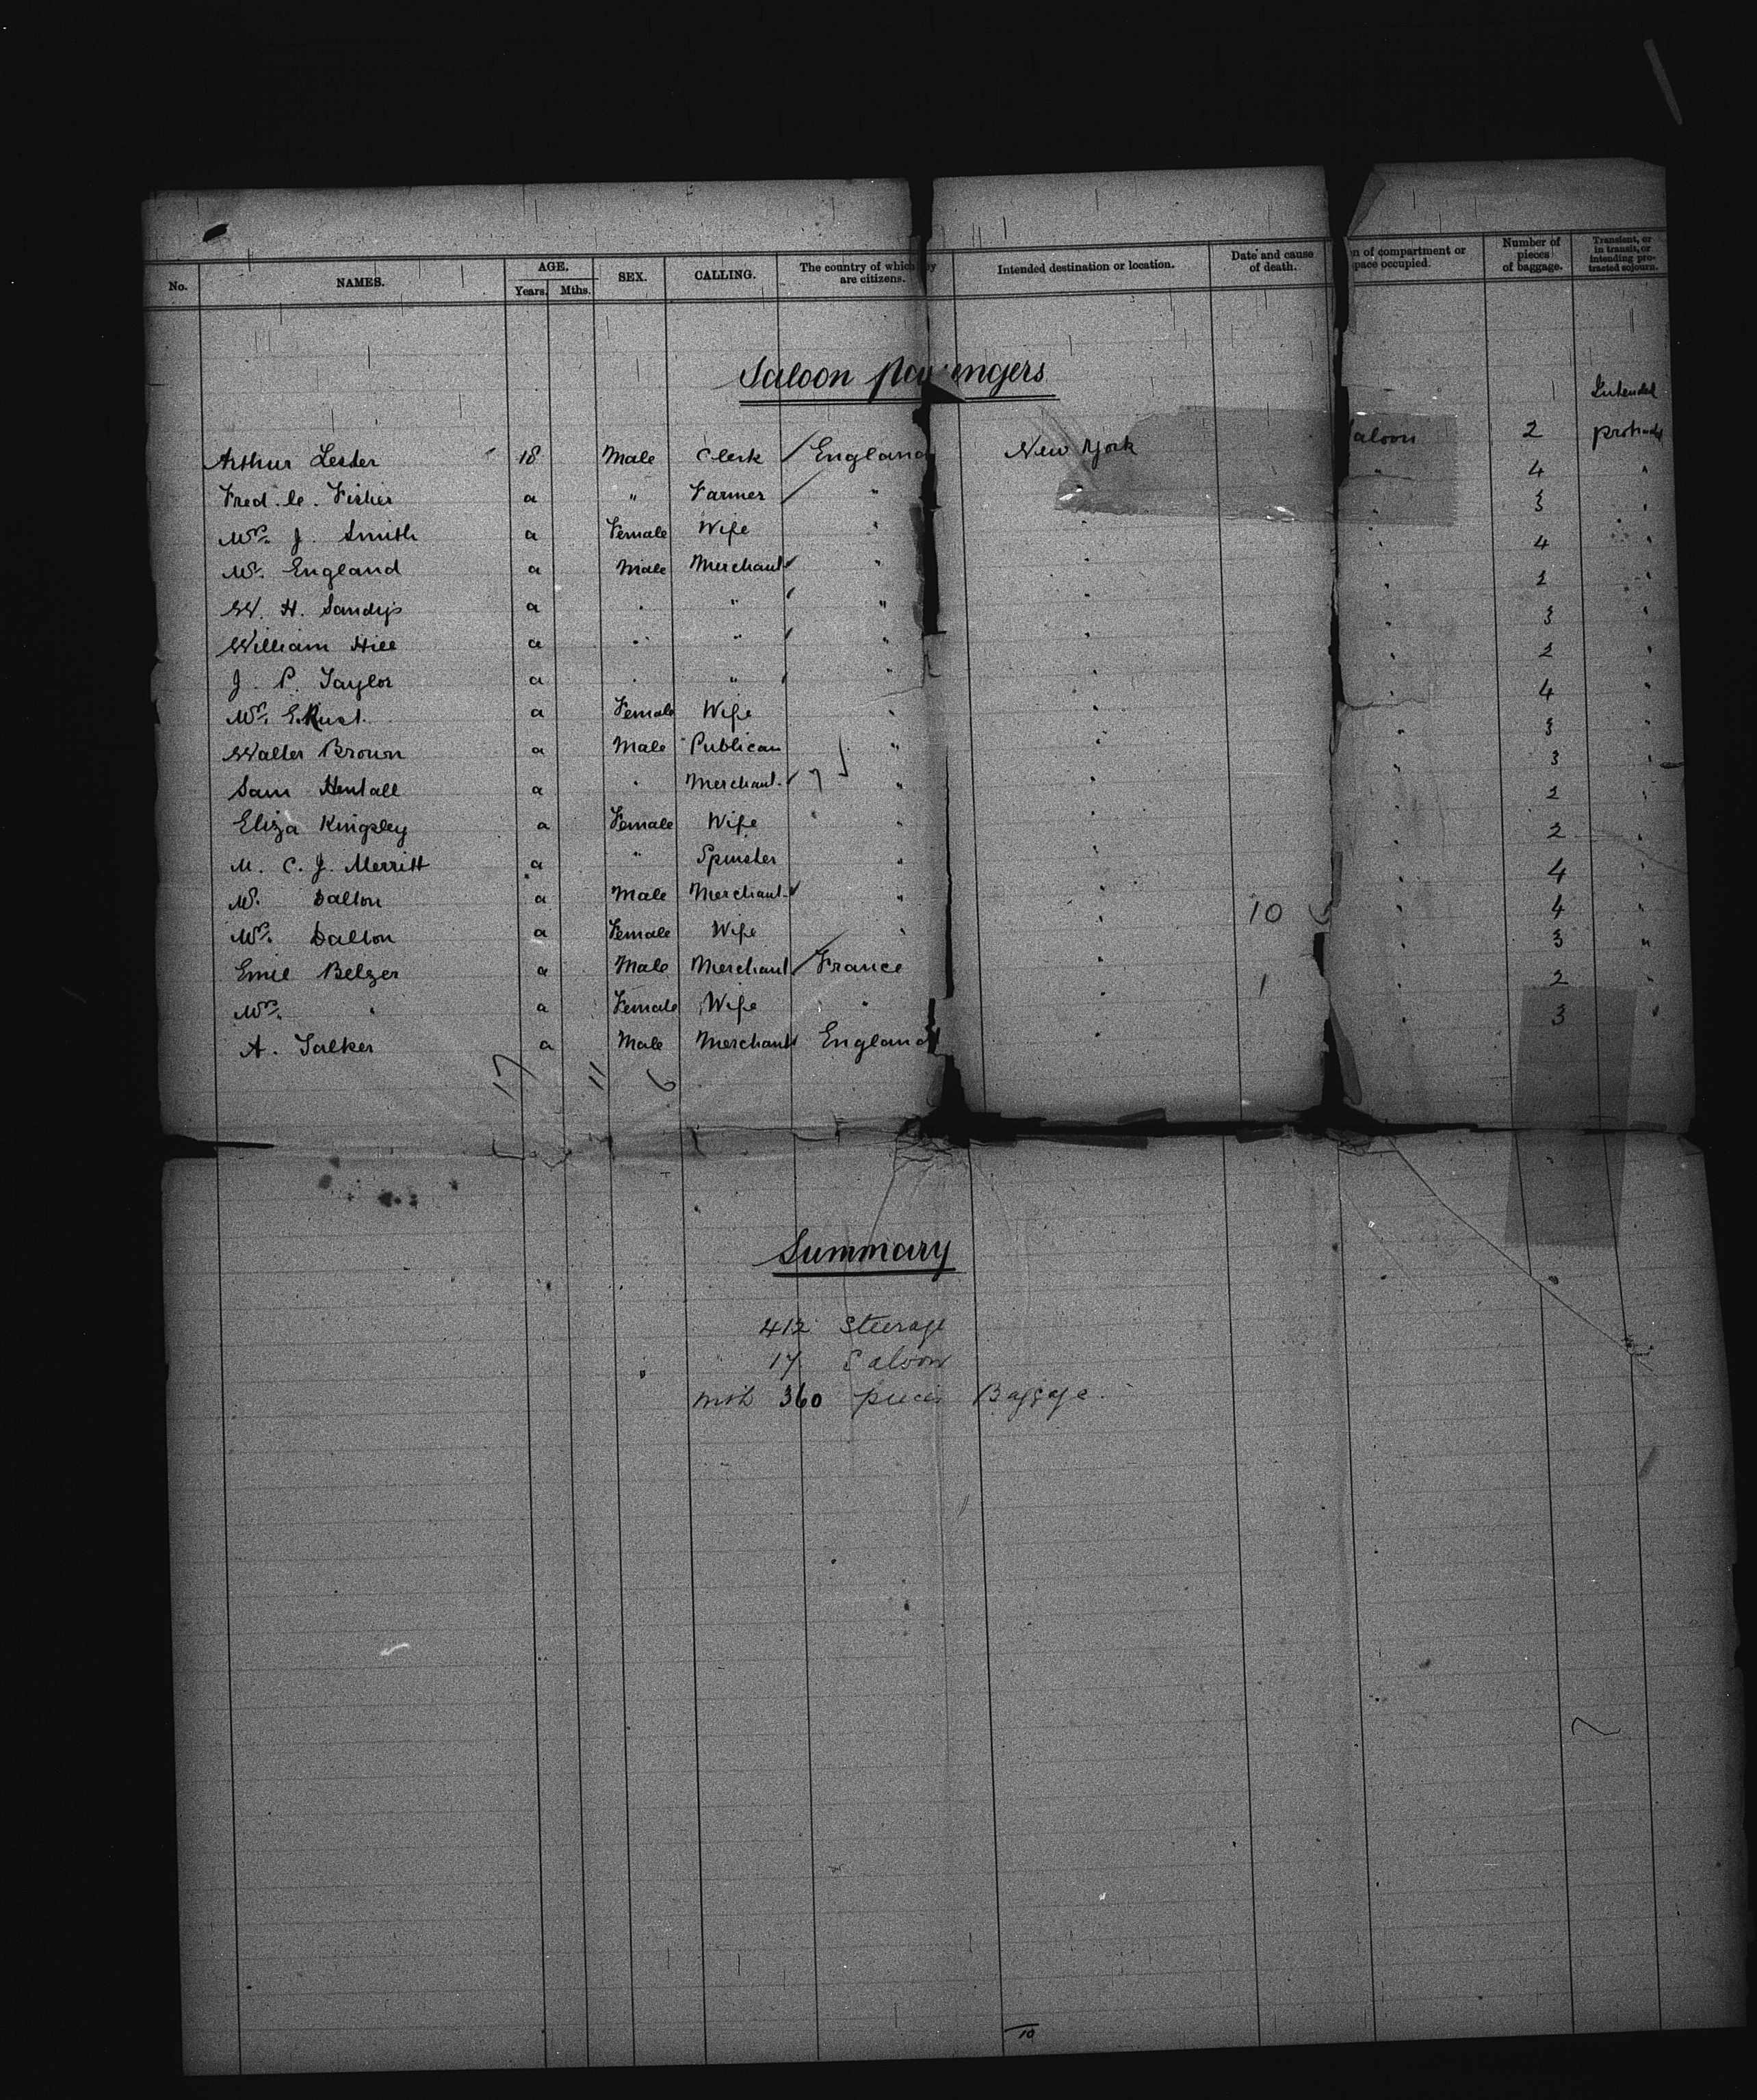 No. NAMES. AGE. Years. Mths. SEX. CALLING. The country of which are citizens. Intended destination or location. Date and cause of death. of compartment or space occupied. Number of pieces of baggage. Transient, or in transit, or intending protracted sojourn.
Saloon passengers
Intended
Arthur Lester 18 Male Clerk England New York Saloon 2
Fred. Fisher a " Farmer " " 4 "
Mrs. J. Smith a Female Wife " " " 3 "
Mr. England a Male Merchant " " " 4 "
W. H. Sandys a " " " " " 2 "
William Hill a " " " " " 3 "
J. P. Taylor a " " " " " 2 "
Mrs. E. Rust a Female Wife " " " 4 "
Walter Brown a Male Publican " " " 3 "
Sam a " Merchant " " " 3 "
Eliza Kingsley a Female Wife " " " 2 "
M. C. J. Merritt a " Spinster " " " 2 "
Mr. Dalton a Male Merchant " " " 4 "
Mrs. Dalton a Female Wife " " 10 " 4 "
Emil Belzer a Male Merchant France " " 3 "
Mrs. " a Female Wife " " 1 " 2 "
A. Salker a Male Merchant England " " 3 "
17 11 6
Summary
412 Steerage
17 Saloon
with 360 pieces Baggage.
10